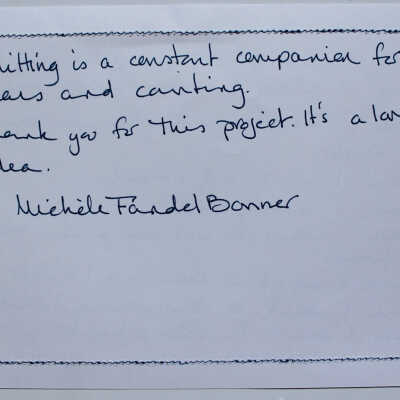 nitting is a constant companion for
ears and counting.
hank you for this project. It's a lov
dea.
Michèle Fandel Bonner